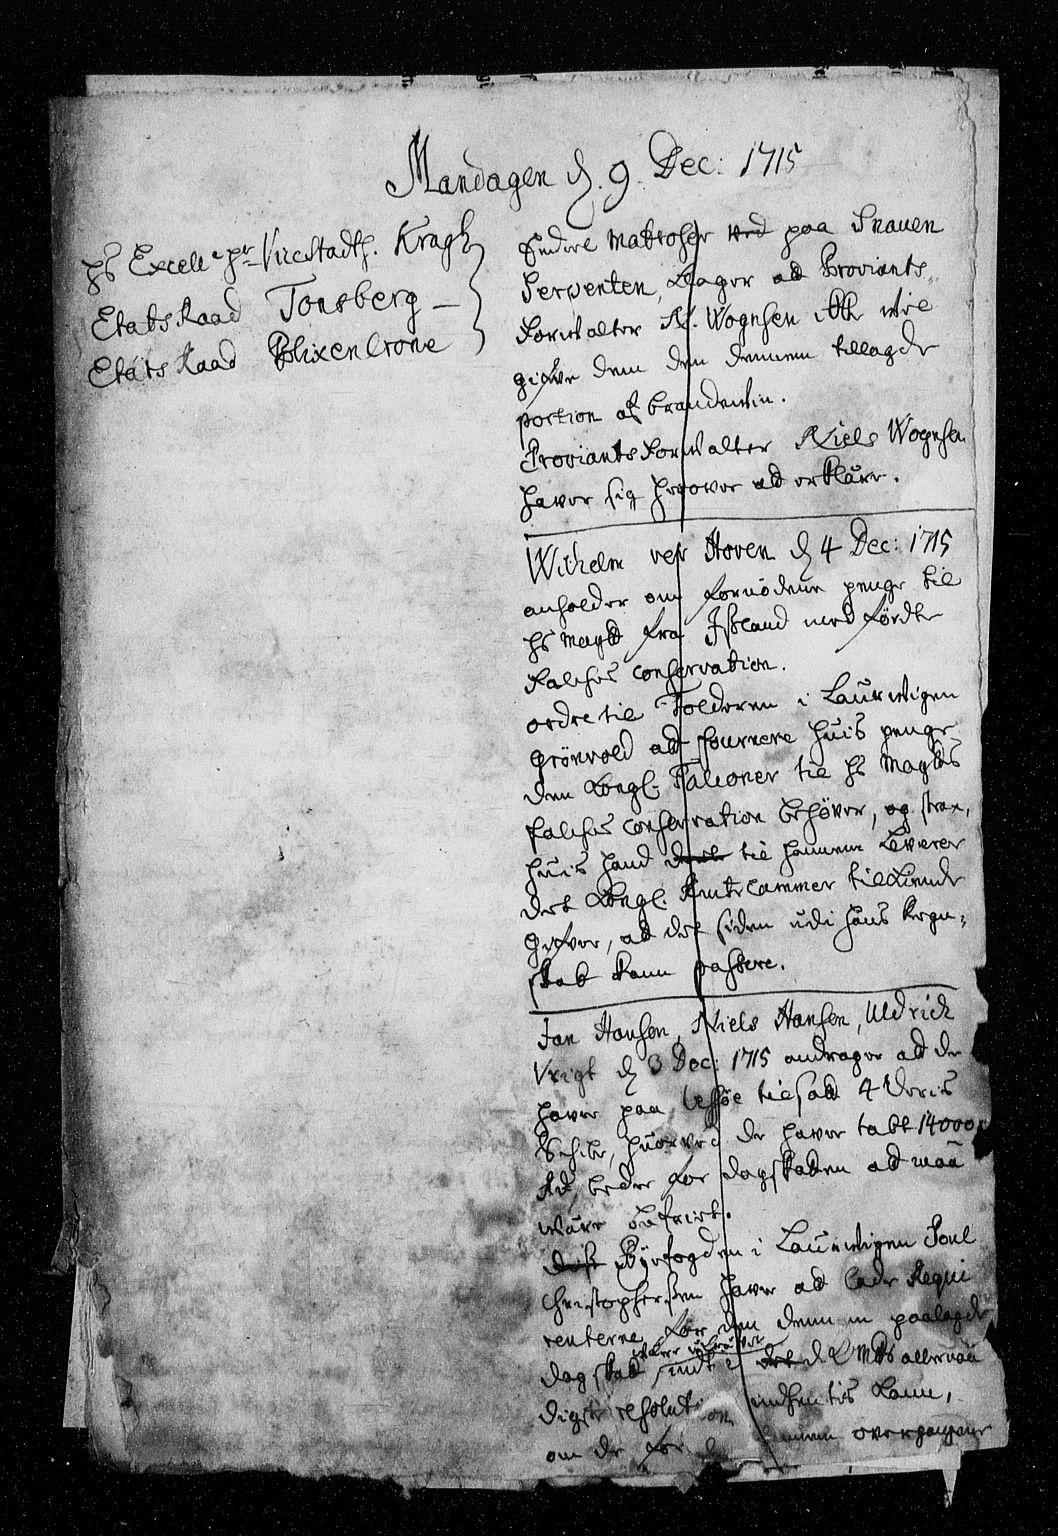 Mandagen d. 9. Dec: 1715
hs Excell: hr ViceStadth. Kragh
Etats Raad Tonsberg
Etats Raad Blixencrone
Endeel Matroser ved paa Snauen
Serpenten, klager ad Proviants
Forwalter N. Wognsen icke wil
gifwe dem den dennem tillagde
portion af brendewin.
Proviants Forwalter Niels Wognsen
hawer sig herover ad erklære.
Wilhelm von Hoven d 4 Dec: 1715
anholder om fornødene penge til
hs Maytt fra Jsland med førdte
Falches conservation.
ordre til Tolderen i Laurwigen
Grönvold ad fournere huis penge
den Kongl. Falconer til hs Maytts
falches conservation behøver, og strax,
huis hand til hannem Leverer
det Kongl. Rente Cammer tilkiende
Gifwer, ad det siden udi hans Regn-
skab kan passere.
Jan Hansen, Niels Hansen, Uldrich
Vrigt d 3 Dec: 1715 andrager ad de
hawer paa tilsatt 4 deris
Schibe, huorved de hawer tabt 14000
Rd, beder for dagskatten ad maa
wære befriet.
Byefogden i Laurwigen Poul
Christophersen hawer ad lade Requi
renterne for den dennem paalagde
dagskat indtil d K Mtts allernaa
digste resolution indhentis kann,
om de for dennem overgangne